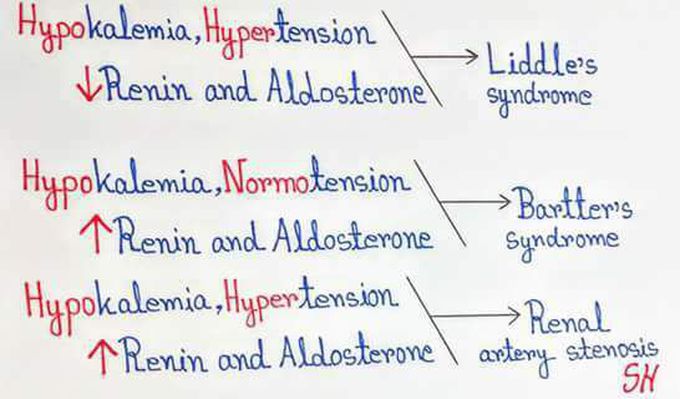 Hypokalemia, Hypertension
↓ Renin and Aldosterone → Liddle's
syndrome
Hypokalemia, Normotension
↑ Renin and Aldosterone → Bartter's
syndrome
Hypokalemia, Hypertension
↑ Renin and Aldosterone → Renal
artery stenosis
SH